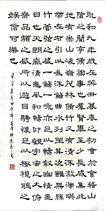 永和九年歲在癸丑暮春之初會於會稽山
陰之蘭亭脩禊事也羣賢畢至少長咸集此
地有崇山峻領茂林脩竹又有清流激湍映
帶左右引以為流觴曲水列坐其次雖無絲
竹管弦之盛一觴一詠亦足以暢敘幽情是
日也天朗氣清惠風和暢仰觀宇宙之大俯
察品類之盛所以遊目騁懷足以極視聽之
娛信可樂也